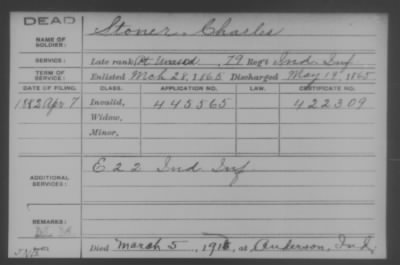 DEAD
NAME OF SOLDIER: Stoner, Charles
SERVICE: Late rank Pt Unassd, 79 Reg't Ind Inf
TERM OF SERVICE: Enlisted Mch 28, 1865 Discharged May 19, 1865
DATE OF FILING. CLASS. APPLICATION NO. LAW. CERTIFICATE NO.
1882 Apr 7 Invalid, 445565 422309
Widow,
Minor,
ADDITIONAL SERVICES: E 22 Ind Inf
REMARKS:
Died March 5, 191, at Anderson, Ind